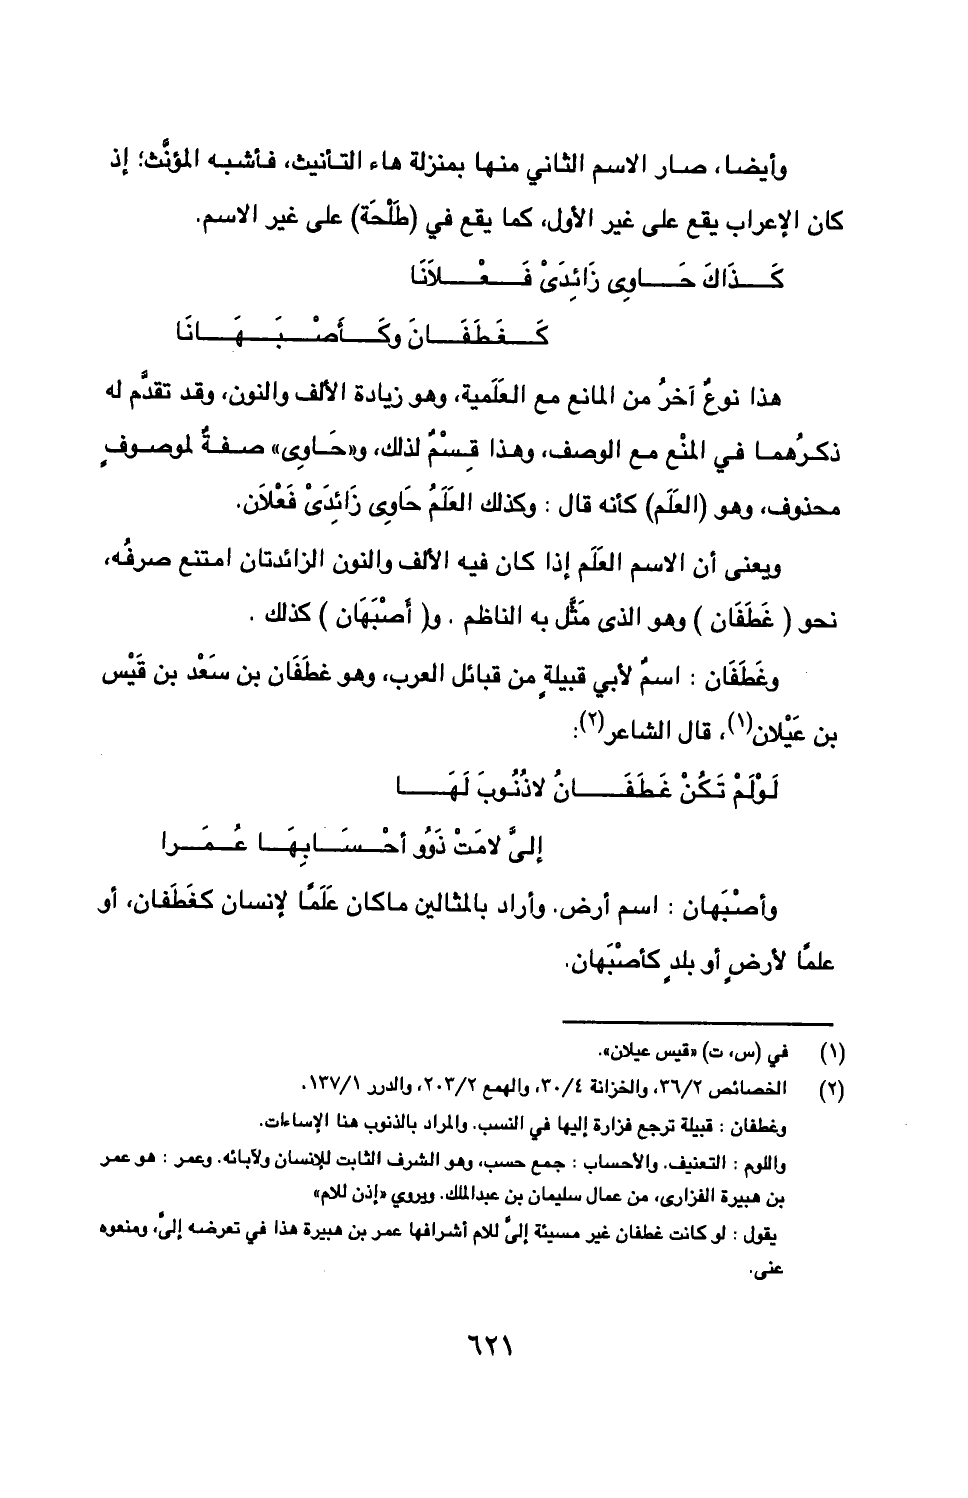 وأيضا، صار الاسم الثاني منها بمنزلة هاء التأنيث، فأشبه المؤنَّث؛ إذ
كان الإعراب يقع على غير الأول، كما يقع في (طَلْحَة) على غير الاسم.
كَـــذَاكَ حَـــاوِى زَائِدَىْ فَـــعْـــلاَنَا
كَـــغَطَفَـــانَ وكَـــأَصْـــبَـــهَـــانَا
هذا نوعٌ آخرُ من المانع مع العَلَمية، وهو زيادة الألف والنون، وقد تقدَّم له
ذكرُهما في المنْع مع الوصف، وهذا قِسْمٌ لذلك، و«حَاوِى» صفةٌ لموصوفٍ
محذوف، وهو (العَلَم) كأنه قال : وكذلك العَلَمُ حَاوِى زَائِدَىْ فَعْلاَن.
ويعنى أن الاسم العَلَم إذا كان فيه الألف والنون الزائدتان امتنع صرفُه،
نحو ( غَطَفَان ) وهو الذى مَثَّل به الناظم . و( أَصْبَهَان ) كذلك .
وغَطَفَان : اسمٌ لأبي قبيلةٍ من قبائل العرب، وهو غطفَان بن سَعْد بن قَيْس
بن عَيْلان(١)، قال الشاعر(٢):
لَوْلَمْ تَكُنْ غَطَفَـــانُ لاذُنُوبَ لَهَـــا
إلىَّ لامَتْ ذَوُو أحْـــسَـــابِهَـــا عُـــمَـــرا
وأصْبَهان : اسم أرض. وأراد بالمثالين ماكان عَلَمًا لإنسان كغَطَفان، أو
علمًا لأرضٍ أو بلدٍ كأصْبَهان.
(١) في (س، ت) «قيس عيلان».
(٢) الخصائص ٣٦/٢، والخزانة ٣٠/٤، والهمع ٢٠٣/٢، والدرر ١٣٧/١.
وغطفان : قبيلة ترجع فزارة إليها في النسب. والمراد بالذنوب هنا الإساءات.
واللوم : التعنيف. والأحساب : جمع حسب، وهو الشرف الثابت للإنسان ولآبائه. وعمر : هو عمر
بن هبيرة الفزارى، من عمال سليمان بن عبدالملك. ويروي «إذن للام»
يقول : لو كانت غطفان غير مسيئة إلىَّ للام أشرافها عمر بن هبيرة هذا في تعرضه إلىَّ، ومنعوه
عنى.
٦٢١